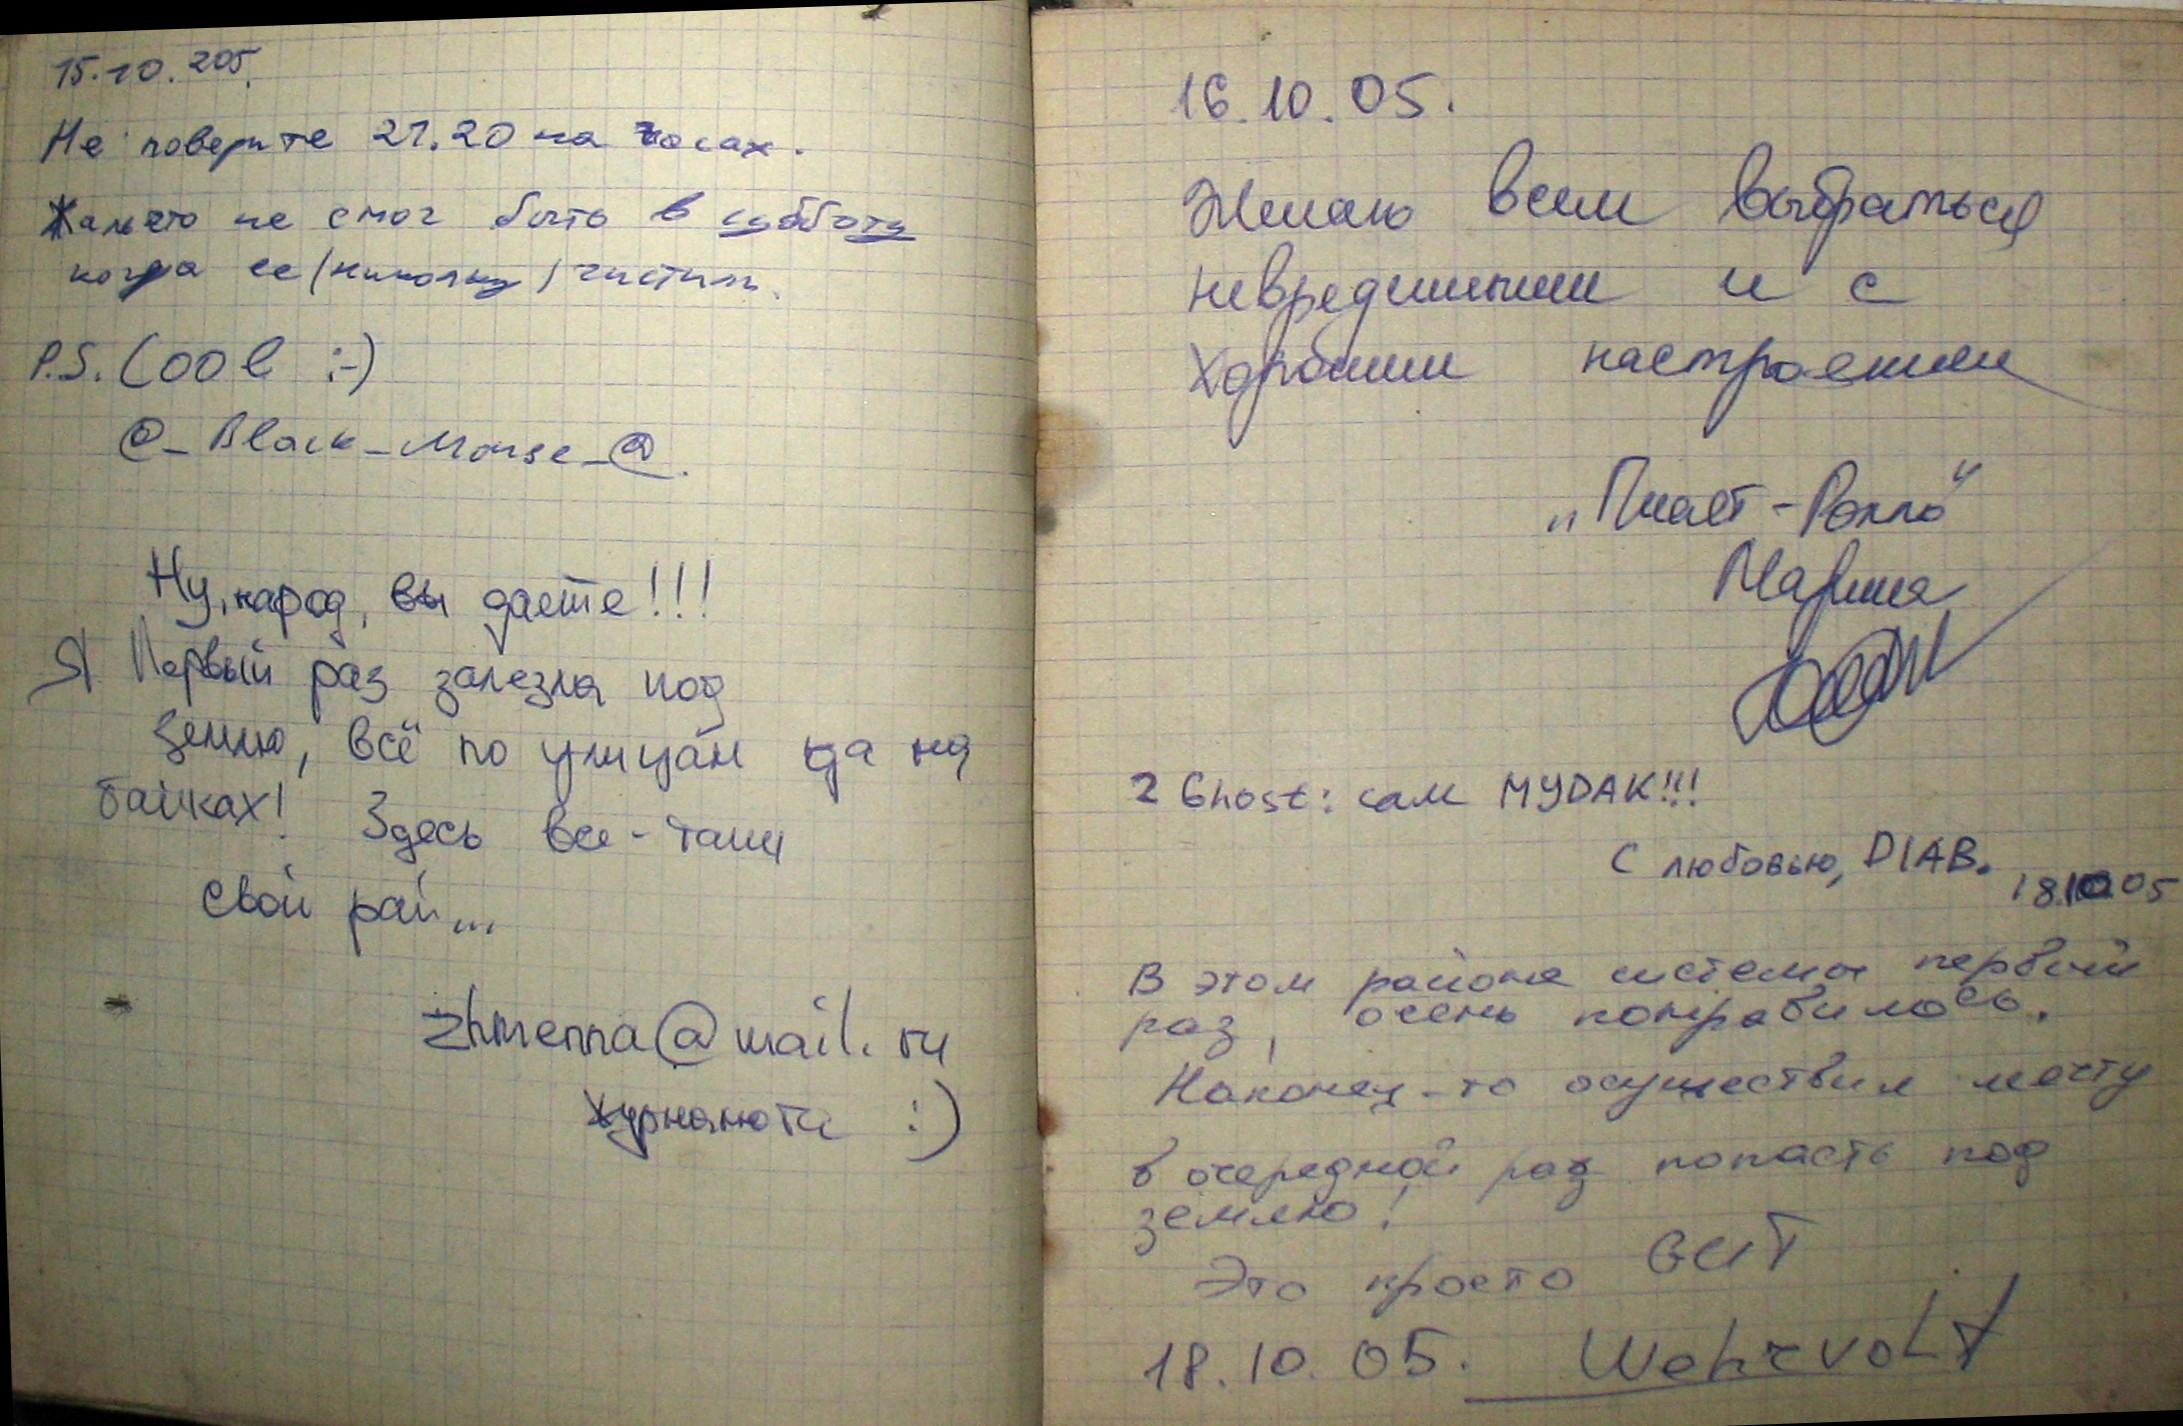 15.10.205.
Не поверите 21.20 на часах.
Жаль что не смог быть в субботу
когда ее (Никольку) чистили.
P.S. Cool :-)
@_Black_Mouse_@.
Ну, народ, вы даете!!!
Я Первый раз залезла под
землю, всё по улицам да на
байках! Здесь все-таки
свой рай...
zhmenna@mail.ru
:)
16.10.05.
Желаю всем выбраться
невредимыми и с
хорошим настроением
Марина
2 Ghost: сам MYDAK!!!
С любовью, DIAB.
18.10.05
В этом районе системы первый
раз, очень понравилось.
Наконец-то осуществил мечту
в очередной раз попасть под
землю!
Это просто
18.10.05. Wehrvolf